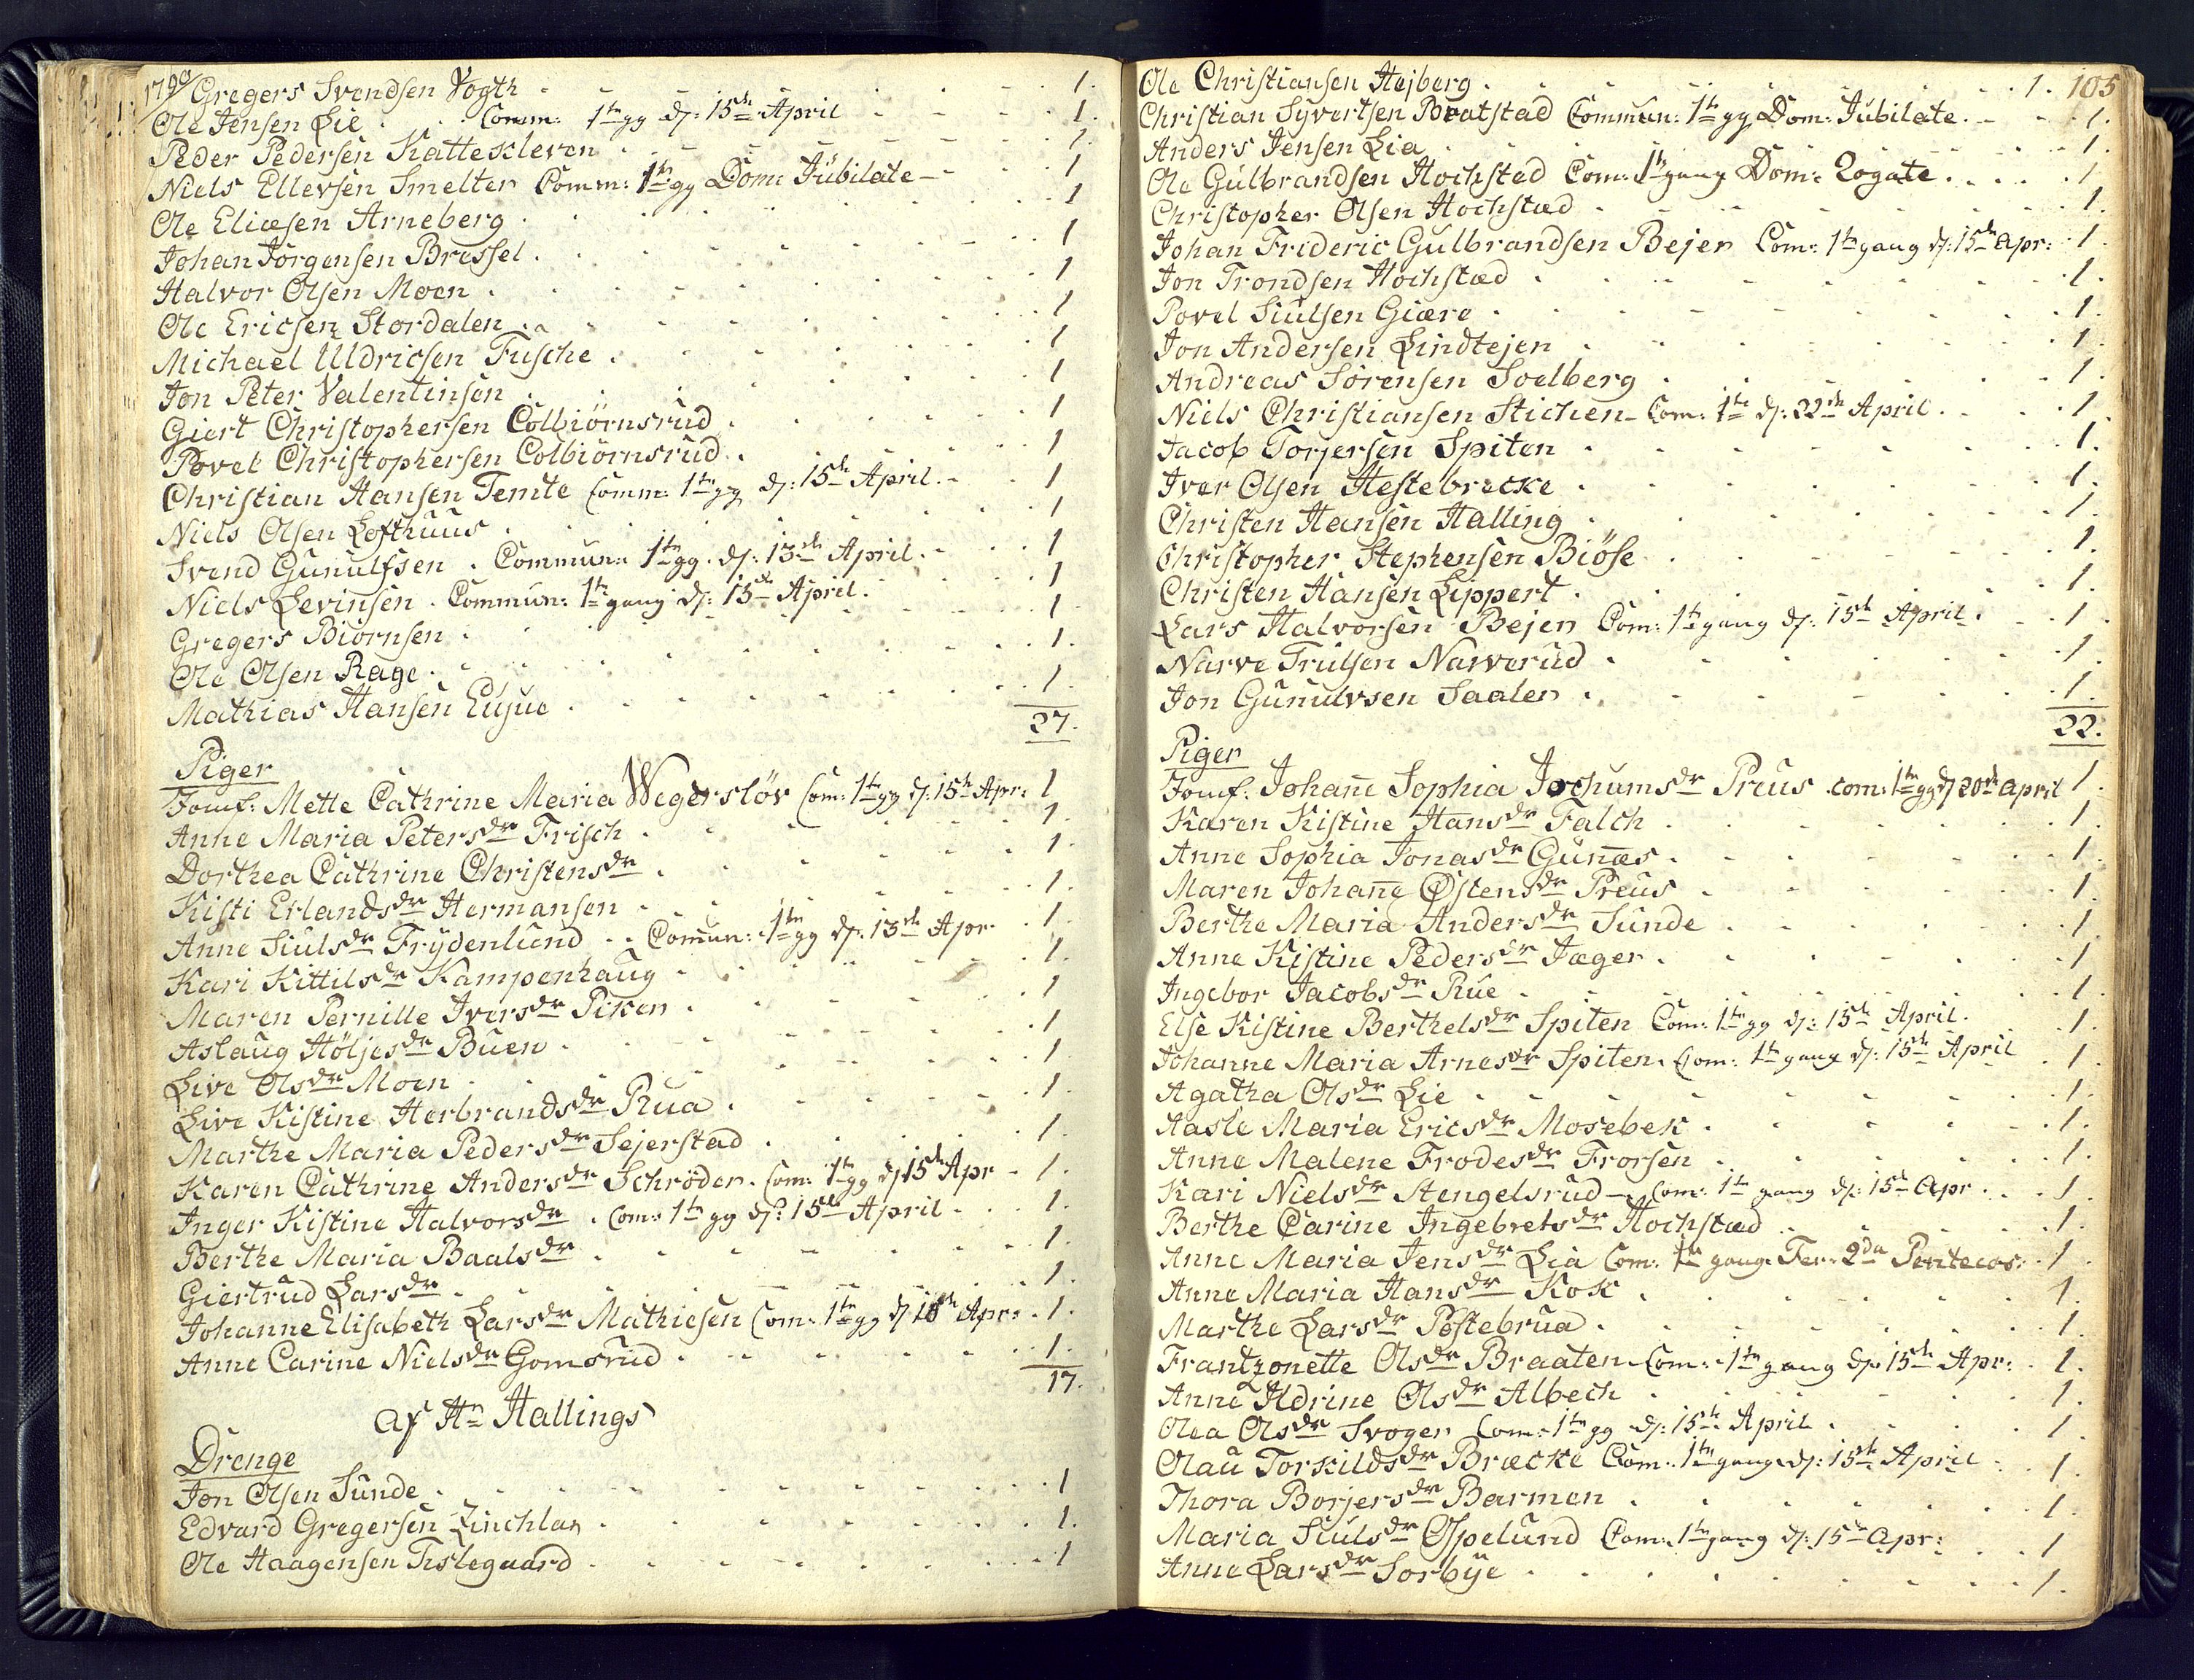 1790 Gregers Svendsen Vogth 1.
Ole Jensen Lie Comm: 1te gg d: 15de April 1.
Peder Pedersen Kattekleven 1.
Niels Ellevsen Smelter Comm: 1te gg Dom: Jubilate 1
Ole Eliæsen Arneberg 1
Johan Jörgensen Bressel 1
Halvor Olsen Moen 1
Ole Ericsen Stordalen 1
Michael Uldricsen Fusche 1
Jon Peter Valentinsen 1
Giert Christophersen Colbiörnsrud 1
Povel Christophersen Colbiörnsrud 1
Christian Hansen Temte Comm: 1te gg d: 15de April 1
Niels Olsen Lofthuus 1
Svend Gunulfsen Commun: 1te gg d: 15de April 1
Niels Levinsen Commun: 1te gang d: 15de April 1
Gregers Biörnsen 1
Ole Olsen Rage 1.
Mathias Hansen 1.
27.
Piger
Jomf: Mette Cathrine Maria Wegerslöv Com: 1te gg d: 15de Apr: 1
Anne Maria Petersdr Frisch 1.
Dorthea Cathrine Christensdr 1.
Kisti Erlandsdr Hermansen 1.
Anne Siulsdr Frydenlund Comun: 1te gg d: 15de Apr. 1
Kari Kittilsdr Kampenhaug 1.
Maren Pernille Iversdr Piken 1
Aslaug Höljesdr Buen 1
Live Olsdr Moen 1.
Live Kistine Herbrandsdr Rua 1.
Marthe Maria Pedersdr Sejerstad 1.
Karen Cathrine Andersdr Schröder Com: 1te gg d 15de Apr 1.
Inger Kistine Halvorsdr Com: 1te gg d: 15de April 1.
Berthe Maria Baalsdr 1.
Giertrud Larsdr 1.
Johanne Elisabeth Larsdr Mathiesen Com: 1te gg d 15de Apr: 1.
Anne Carine Nielsdr Gomsrud 1.
17.
Af Hr Hallings
Drenge
Jon Olsen Sunde 1
Edvard Gregersen Linchlan 1.
Ole Haagensen Tislegaard 1
Ole Christiansen Hejberg 1. 105
Christian Syvertsen Bratstad Commun: 1te gg Dom: Jubilate. 1.
Anders Jensen Lia 1.
Ole Gulbrandsen Hochstad Com: 1te gang Dom: Rogate 1
Christopher Olsen Hochstæd 1.
Johan Frideric Gulbrandsen Bejer Com: 1te gang d: 15de Apr: 1
Jon Trondsen Hochstæd 1.
Povel Siulsen Giære 1.
Jon Andersen Lindtejen 1.
Andreas Sörensen Soelberg 1.
Niels Christiansen Stichen Com: 1te d: 22de April 1
Jacob Torjersen Spiten 1.
Iver Olsen Hestebrecke 1.
Christen Hansen Halling 1.
Christopher Stephensen Biöse 1.
Christen Hansen Lippert 1.
Lars Halvorsen Bejer Com: 1te gang d: 15de April 1
Narve Trulsen Narverud 1.
Jon Gunulvsen Saalen 1.
22.
Piger
Jomf. Johañe Sophia Jochumsdr Preus com: 1te gg d 20de April 1.
Karen Kistine Hansdr Falch 1.
Anne Sophia Jonasdr Guñæs 1.
Maren Johañe Østensdr Preus 1.
Berthe Maria Andersdr Sunde 1
Anne Kistine Pedersdr Jæger 1
Ingebor Jacobsdr Rue 1.
Else Kistine Berthelsdr Spiten Com: 1te gg d: 15de April. 1.
Johanne Maria Arnesdr Spiten Com: 1te gang d: 15de April 1.
Agatha Olsdr Lie 1.
Aasle Maria Ericsdr Mosebek 1.
Anne Malene Frodesdr Frorsen 1.
Kari Nielsdr Stengelsrud Com: 1te gang d: 15de Apr 1
Berthe Carine Ingebretsdr Hochstæd 1.
Anne Maria Jensdr Lia Com: 1te gang Fer: 2da Pentecos: 1
Anne Maria Hansdr Kok 1.
Marthe Larsdr Pöstebrua 1.
Frantzonette Olsdr Braaten Com: 1te gang d: 15de Apr: 1.
Anne Aldrine Olsdr Albech 1.
Olea Olsdr Svoger Com: 1te gg d: 15de April 1
Olau Torkildsdr Bræcke Com: 1te gang d: 15de April 1.
Thora Borjersdr Barmen 1.
Maria Siulsdr Øspelund Com: 1te gang d: 15de Apr: 1
Anne Larsdr Sorbye 1.